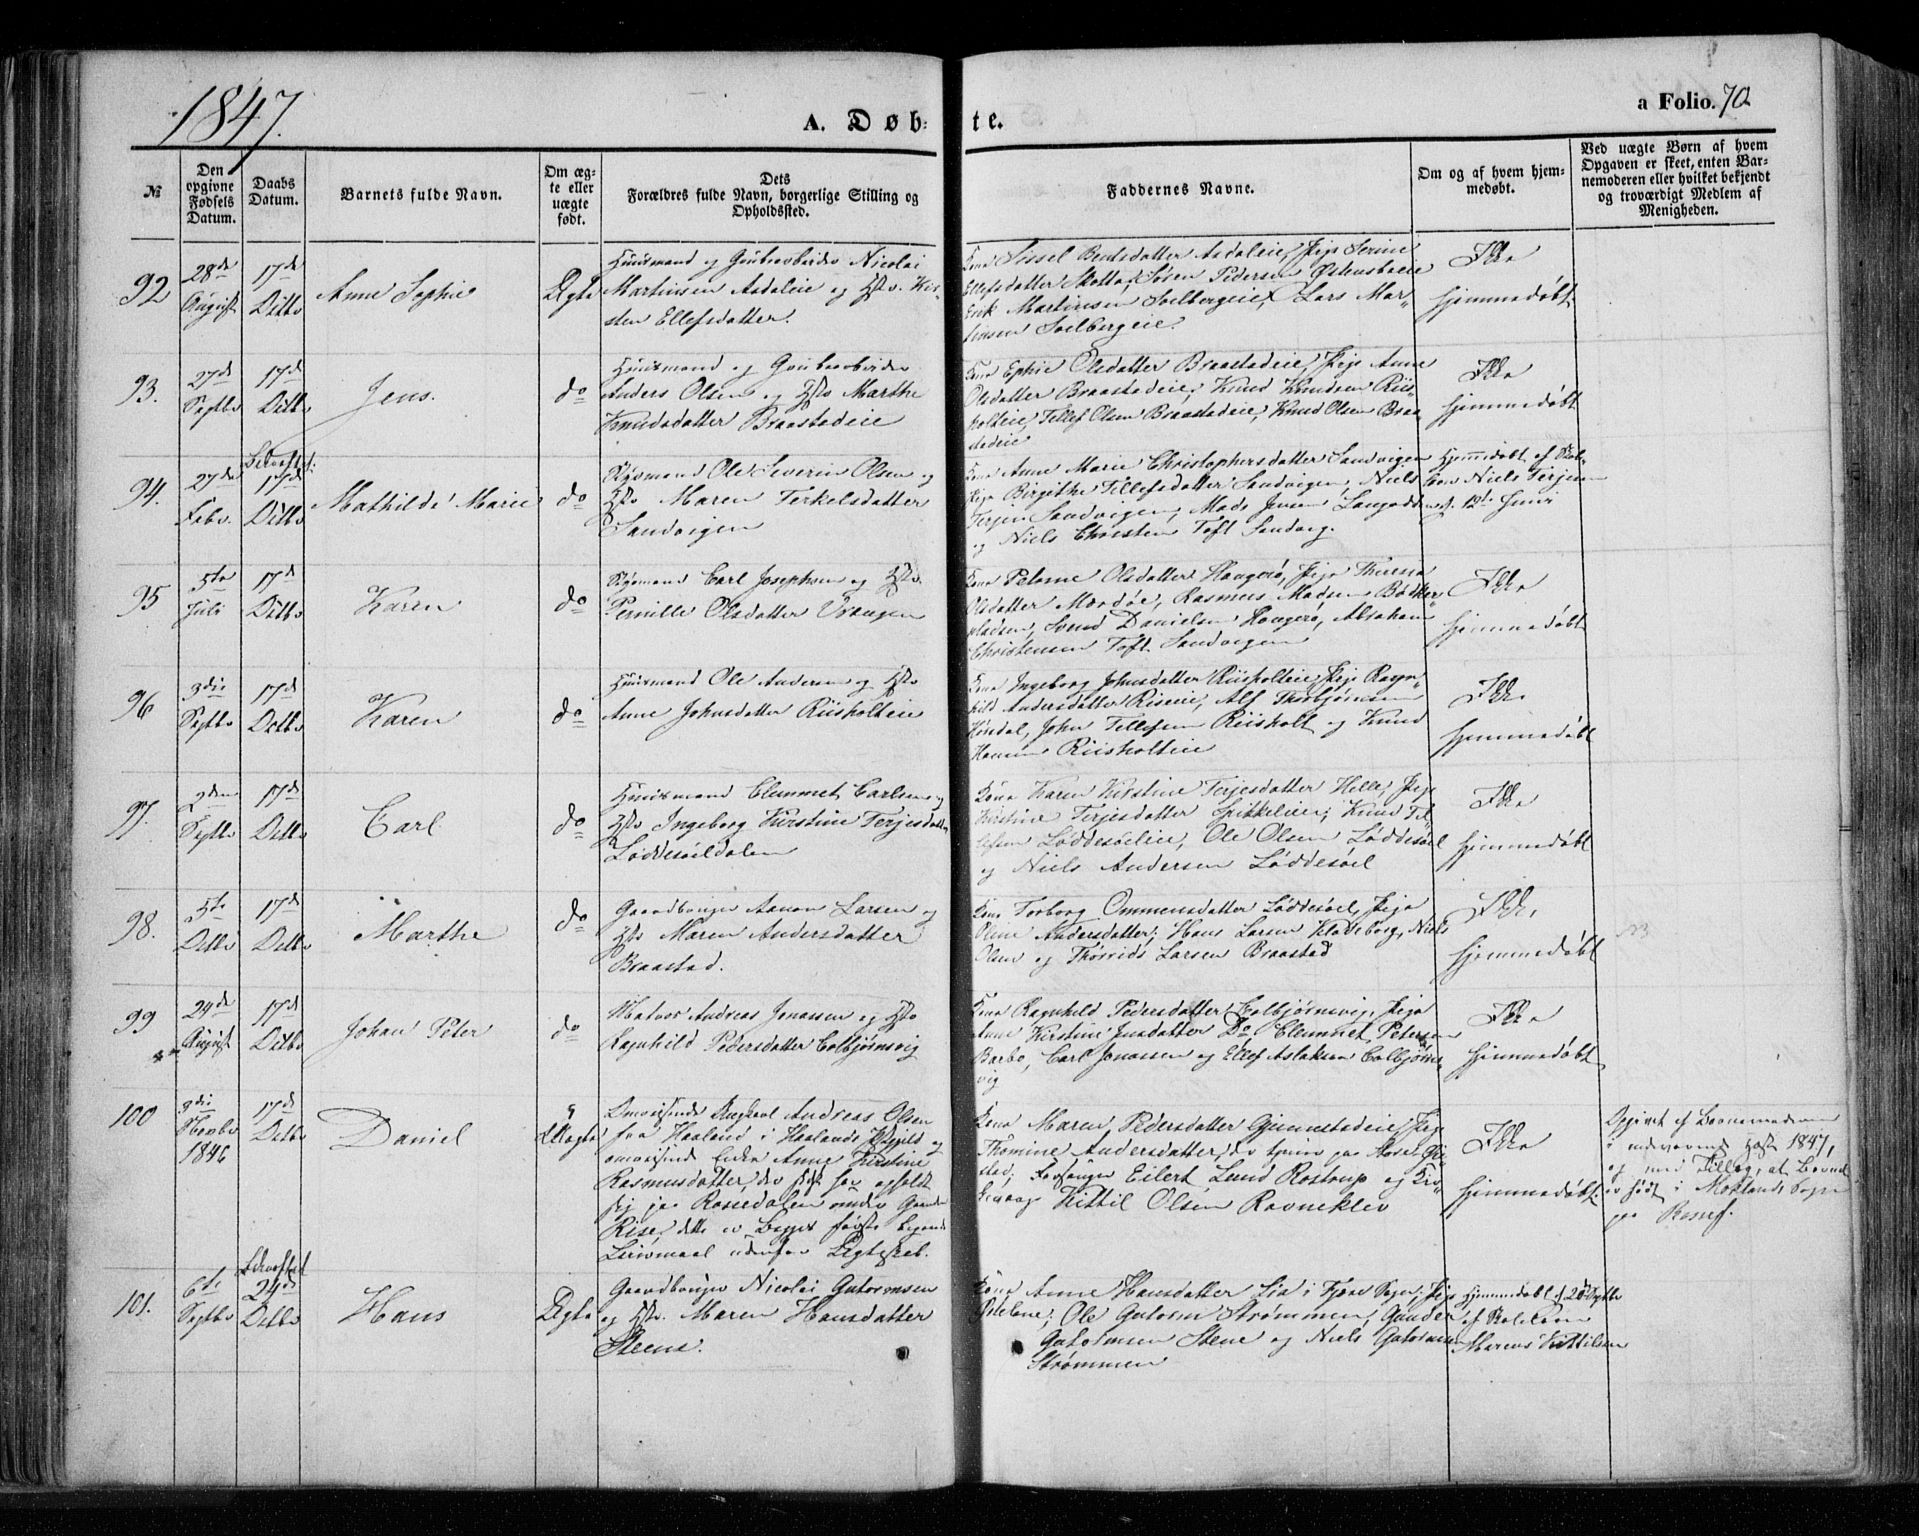 1847.
A. Døbte.
a Folio. 70
№
Den opgivne Fødsels Datum.
Daabs Datum.
Barnets fulde Navn.
Om ægte eller uægte født.
Dets Forældres fulde Navn, borgerlige Stilling og Opholdssted.
Faddernes Navne.
Om og af hvem hjemmedøbt.
Ved uægte Børn af hvem Opgaven er skeet, enten Barnemoderen eller hvilket bekjendt og troværdigt Medlem af Menigheden.
92
28de August
17de Ditto
Anne Sophie
Ægte
Huusmand og Grubearbeider Nicolai
Martinsen Asdaleie og Hst. Kir-
sten Ellefsdatter.
Kona Sissel Bentsdatter Asdaleie, Pige Serine
Ellefsdatter Skotta, Søren Pedersen Østensbueie
Erik Martinsen Solbergeie, Lars Mar-
tinsen Solbergeie.
Ikke
hjemmedøbt.
93.
27de Septbr
17de Ditto
Jens.
do
Huusmand og Grubearbeider
Anders Olsen og Hst. Marthe
Knudsdatter Braastadeie
Kona Ephie Olsdatter Braastadeie, Pige Anne
Olsdatter Braastadeie, Knud Knudsen Riis-
holteie, Tellef Olsen Braastadeie, Knud Olsen Braa-
stadeie
Ikke
hjemmedøbt
94.
27de Febr.
17de Ditto
Mathilde Marie
do
Ole Severin Olsen og
Hst. Maren Terkelsdatter
Sandvigen
Kona Anne Marie Christophersdatter Sandvigen
Pige Birgithe Tellefsdatter Sandvigen, Niels
Terjesen Sandvigen, Mads Jensen
og Niels Christen Toft Sandvig.
Hjemmedøbt af
Niels Terjesen
12te Juni
95
5te Juli
17de Ditto
Karen
do
Carl Josephsen og Hst.
Pernille Olsdatter Vrangen
Kona Olsdatter Havgerø, Pige
Olsdatter Merdøe, Rasmus Madsen Bødker-
pladsen, Svend Danielsen Havgerø, Abraham
Christensen Toft. Sandvigen
Ikke
hjemmedøbt
96
3die Septbr
17de Ditto
Karen
do
Huusmand Ole Andersen og Hst.
Anne Johnsdatter Riisholteie
Kona Ingeborg Johnsdatter Riisholteie, Pige Ragn-
hild Andersdatter Riseeie, Alf Thorbjørnsen
John Tellefsen Riisholt og Knud
Hansen Riisholteie
Ikke
hjemmedøbt
97.
2den Septbr
17de Ditto
Carl
do
Huusmand Clemmet Carlsen og
Hst. Ingeborg Kirstine Terjesdatter
Løddesøeldalen
Kona Karen Kirstine Terjesdatter Helle, Pige
Kirstine Terjesdatter Spikkelieie, Knud Tel-
lefsen Løddesøeleie, Ole Olsen Løddesøel
og Niels Andersen Løddesøel
Ikke
hjemmedøbt
98.
5te Ditto
17de Ditto
Marthe
do
Gaardbruger Aanon Larsen og
Hst. Maren Andersdatter
Braastad.
Kona Torborg Ommensdatter Løddesøel, Pige
Oline Andersdatter, Hans Larsen Kladeborg, Niels
Olsen og Larsen Braastad
Ikke,
hjemmedøbt
99
24de August
17de Ditto
Johan Peter
do
Matros Andreas Jonassen og Hst.
Ragnhild Pedersdatter Colbjørnsvig
Kona Ragnhild Pedersdatter Colbjørnsvig, Pige
Anne Kirstine Jensdatter Do, Clemmet Petersen
Barbo, Carl Jonassen og Ellef Aslaksen Colbjørns-
vig
Ikke
hjemmedøbt
100
3die Novbr 1846
17de Ditto
Daniel
Uægte
Omreisende Ungkarl Andreas Olsen
fra Haaland i Haalands Præstegjeld og
omreisende Enke Anne Kirstine
Rasmusdatter, der sidst har opholdt
sig paa Rossedalen under Gaarden
Rise, dette er Begges første Begaaede
Leiermaal udenfor Ægteskab.
Kona Maren Pedersdatter Gjennestadeie, Pige
Thomine Andersdatter, der tjener paa
Forsanger Eilert Lund Rostrup og
Kittil Olsen Ravneklev
Ikke
hjemmedøbt.
Opgivet af Barnemoderen
i nærværende Høst 1847,
og med Tillæg, at Barnet
er født i Moklands Sogn
paa
101.
6te Septbr
24de Ditto
Hans
Ægte
Gaardbruger Nicolai Gutormsen
og Hst. Maren Hansdatter
Steene.
Kona Anne Hansdatter Lia i Fjære Sogn, Pige
Ole Gutorm Strømmen, Gunder
Gutormsen Stene og Niels Gutormsen
Strømmen
Hjemmedøbt d 26 Septbr
af
Marcus Kittilsen